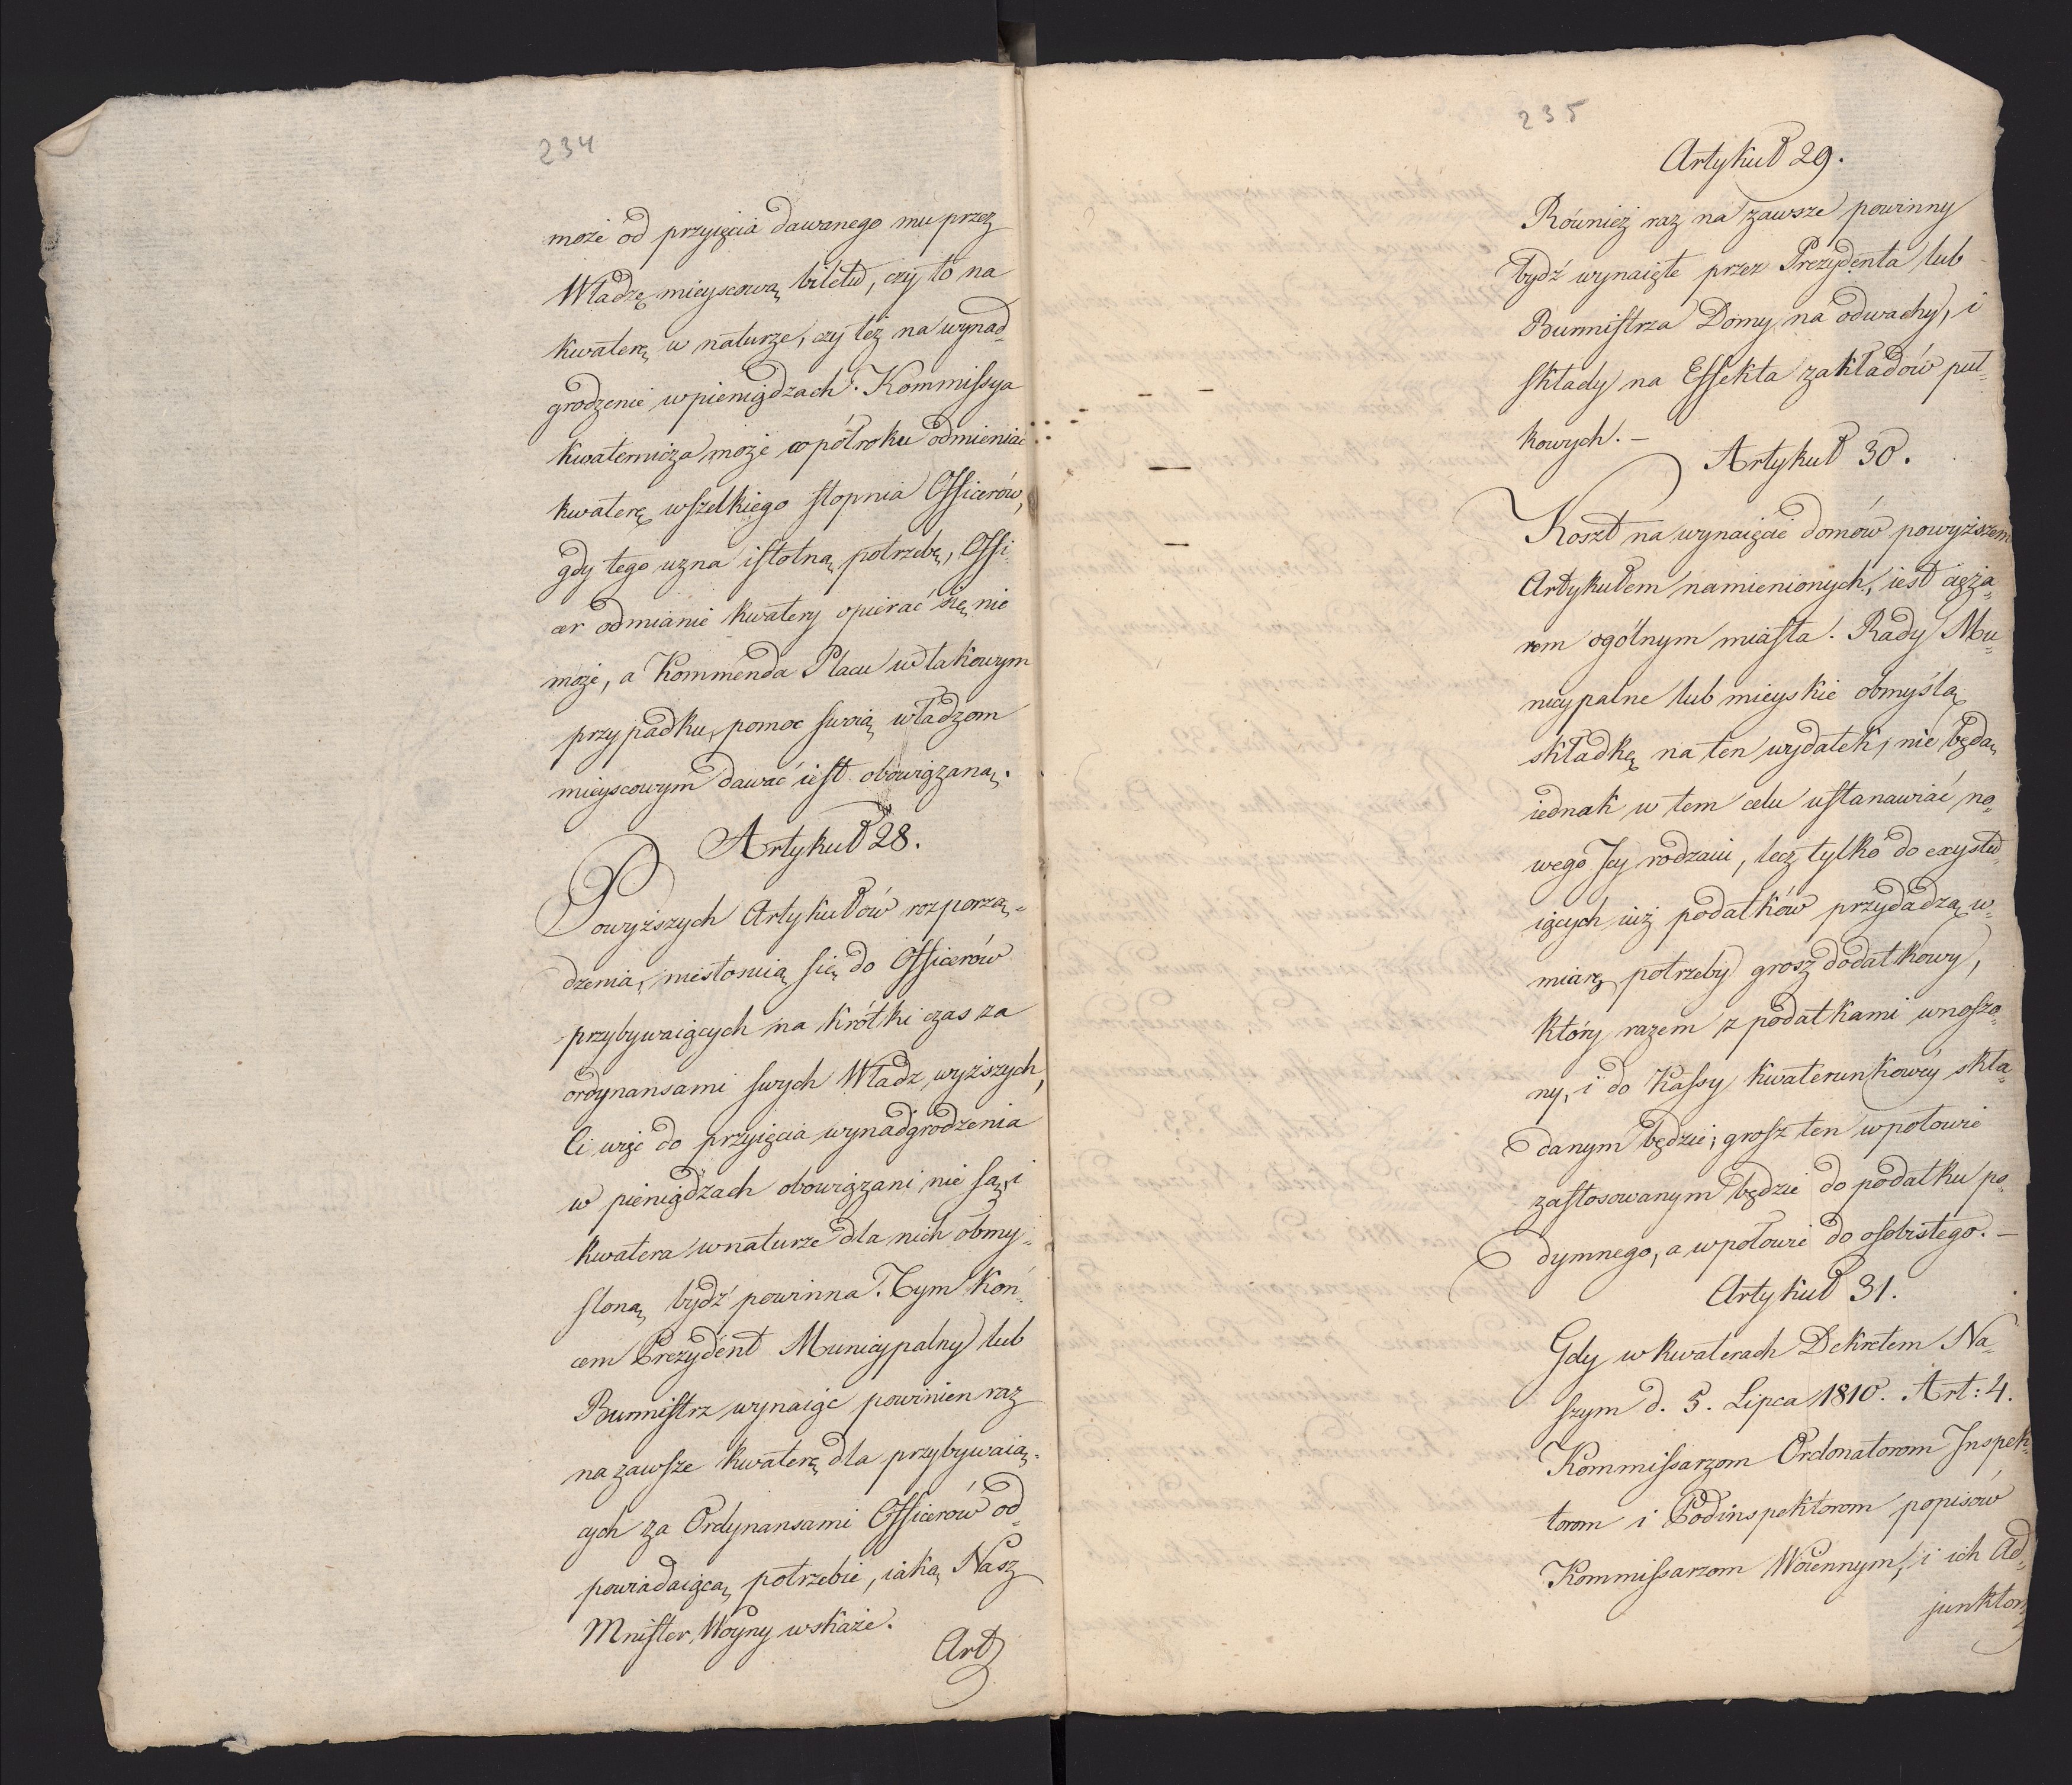 234
może od przyięcia dawanego mu przez
Władzę mieyscową biletu, czy to na
kwaterę w naturze, czy też na wynad-
grodzenie w pieniądzach. Kommissya
kwaternicza może co pół roku odmieniać
kwaterę wszelkiego stopnia Officerów,
gdy tego uzna istotną potrzebę, Offi-
cer odmianie kwatery opierać się nie
może, a Kommenda Placu w takowym
przypadku, pomoc swoią władzom
mieyscowym dawać iest obowiązaną.
Artykuł 28.
Powyższych Artykułów rozporzą-
dzenia, niestosuią się do Officerów
przybywaiących na krótki czas za
ordynansami swych Władz wyższych,
Ci więc do przyięcia wynadgrodzenia
w pieniądzach obowiązani nie są, i
kwatera w naturze dla nich obmy-
sloną bydź powinna. Tym koń-
cem Prezydent Municypalny lub
Burmistrz wynaiąc powinien raz
na zawsze kwaterę dla przybywaią-
cych za Ordynansami Officerów od-
powiadaiącą potrzebie, iaką Nasz
Mnister Woyny wskaże.
Art
235
Artykuł 29.
Również raz na zawsze powinny
bydź wynaięte przez Prezydenta lub
Burmistrza Domy na odwachy, i
składy na Effekta zakładów puł-
kowych. –
Artykuł 30.
Koszt na wynaięcie domów powyższem
Artykułem namienionych, iest cięża-
rem ogólnym miasta. Rady Mu-
nicypalne lub mieyskie obmyślą
składkę na ten wydatek, nie będą
iednak w tem celu ustanawiać no-
wego Jey rodzaiu, lecz tylko do exystu-
iących iuż podatków przydadzą w
miarę potrzeby grosz dodatkowy,
który razem z podatkami wnoszo-
ny, i do Kassy kwaterunkowéy skła-
danym będzie; grosz ten w połowie
zastosowanym będzie do podatku po-
dymnego, a w połowie do osobistego. –
Artykuł 31.
Gdy w kwaterach Dekretem Na-
szym d. 5. Lipca 1810. Art: 4.
Kommissarzom Ordonatorom Inspek-
torom i Podinspektorom popisów
Kommissarzom Woiennym, i ich Ad-
junktom